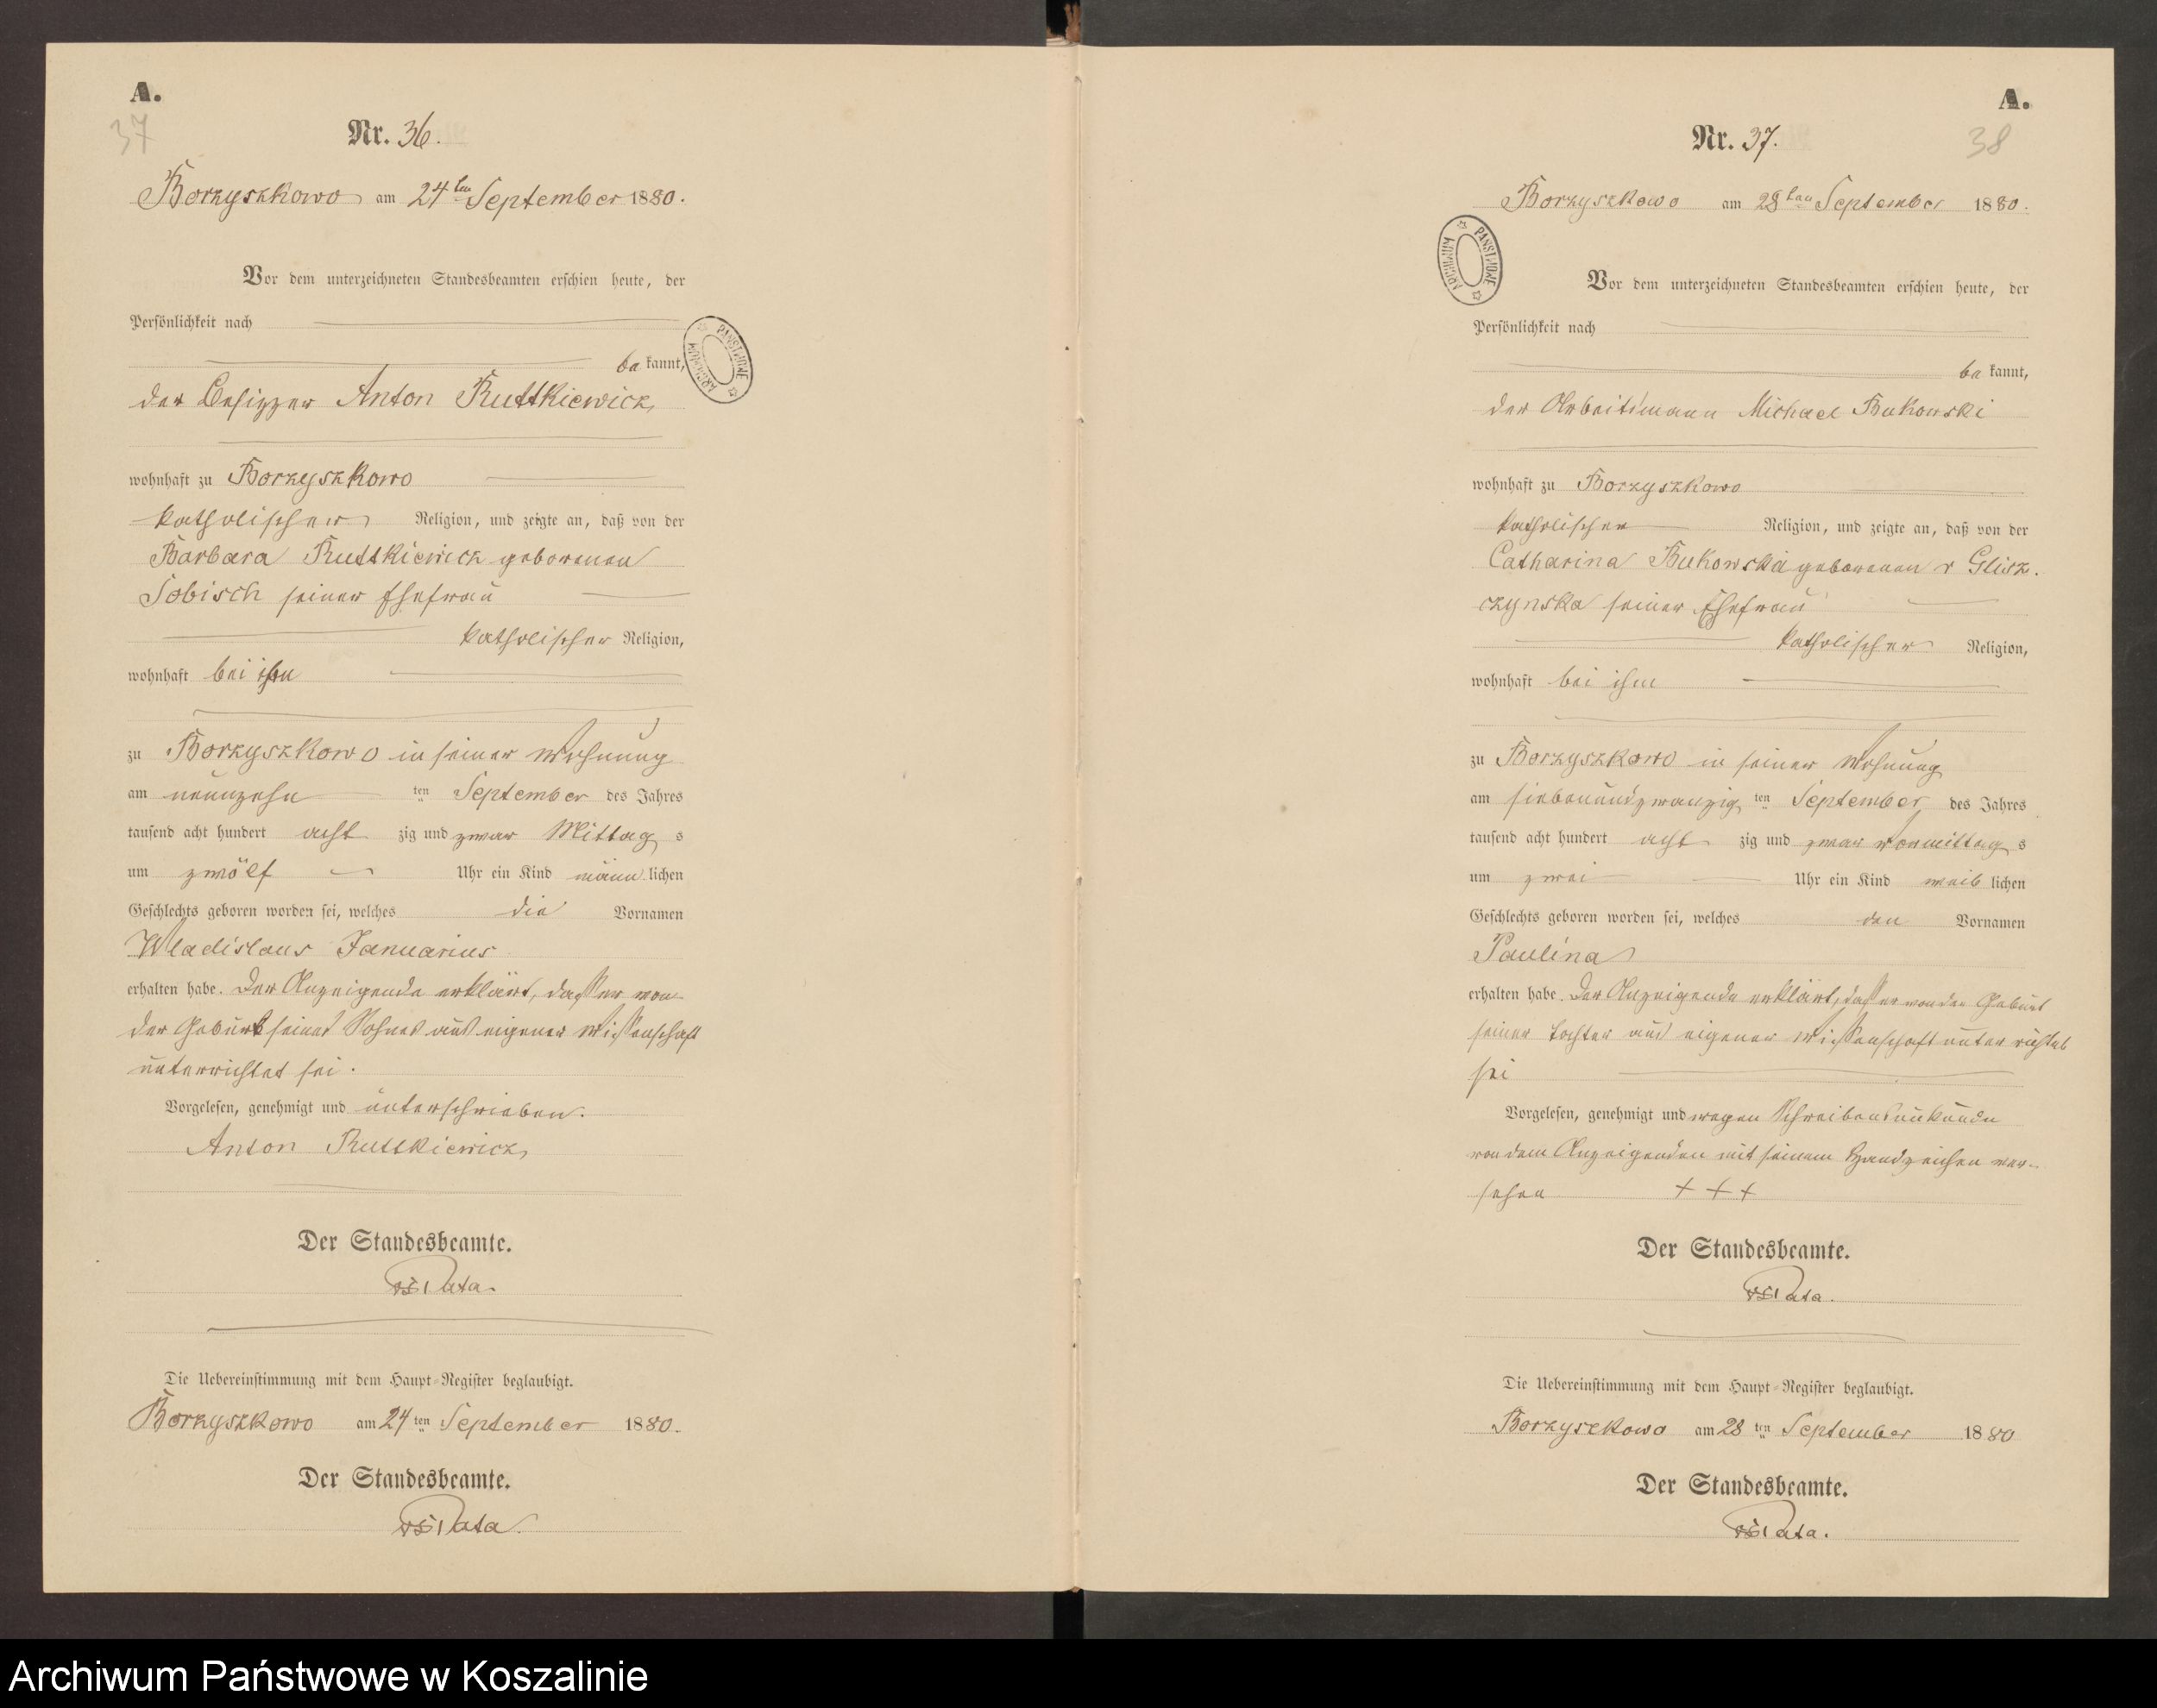 A.
37
Nr. 36.
Borzyszkowo am 24ten September 1880.
Vor dem unterzeichneten Standesbeamten erschien heute, der
Persönlichkeit nach
bekannt,
der Besitzer Anton Ruttkiewicz,
wohnhaft zu Borzyszkowo
katholischer Religion, und zeigte an, daß von der
Barbara Ruttkiewicz geborenen
Sobisch seiner Ehefrau
katholischer Religion,
wohnhaft bei ihm
zu Borzyszkowo in seiner Wohnung
am neunzehn ten September des Jahres
tausend acht hundert acht zig und zwar Mittag s
um zwölf Uhr ein Kind männ lichen
Geschlechts geboren worden sei, welches die Vornamen
Wladislaus Januarius
erhalten habe. Der Anzeigende erklärt, daß er von
der Geburt seines Sohnes aus eigener Wissenschaft
unterrichtet sei.
Vorgelesen, genehmigt und unterschrieben.
Anton Ruttkiewicz,
Der Standesbeamte.
Die Uebereinstimmung mit dem Haupt-Register beglaubigt.
Borzyszkowo am 24 ten September 1880.
Der Standesbeamte.
A.
38
Nr. 37.
Borzyszkowo am 28ten September 1880.
ARCHIWUM PAŃSTWOWE
Vor dem unterzeichneten Standesbeamten erschien heute, der
Persönlichkeit nach
bekannt,
der Arbeitsmann Michael Bukowski
wohnhaft zu Borzyszkowo
katholischer Religion, und zeigte an, daß von der
Catharina Bukowska geborenen v Glisz-
czynska seiner Ehefrau
katholischer Religion,
wohnhaft bei ihm
zu Borzyszkowo in seiner Wohnung
am siebenundzwanzig ten September des Jahres
tausend acht hundert acht zig und zwar Vormittag s
um zwei Uhr ein Kind weib lichen
Geschlechts geboren worden sei, welches den Vornamen
Paulina
erhalten habe. Der Anzeigende erklärt, daß er von der Geburt
seiner Tochter aus eigener Wissenschaft unterrichtet
sei
Vorgelesen, genehmigt und wegen Schreibensunkunde
von dem Anzeigenden mit seinem Handzeichen ver-
sehen + + +
Der Standesbeamte.
Die Uebereinstimmung mit dem Haupt-Register beglaubigt.
Borzyszkowo am 28 ten September 1880
Der Standesbeamte.
Archiwum Państwowe w Koszalinie